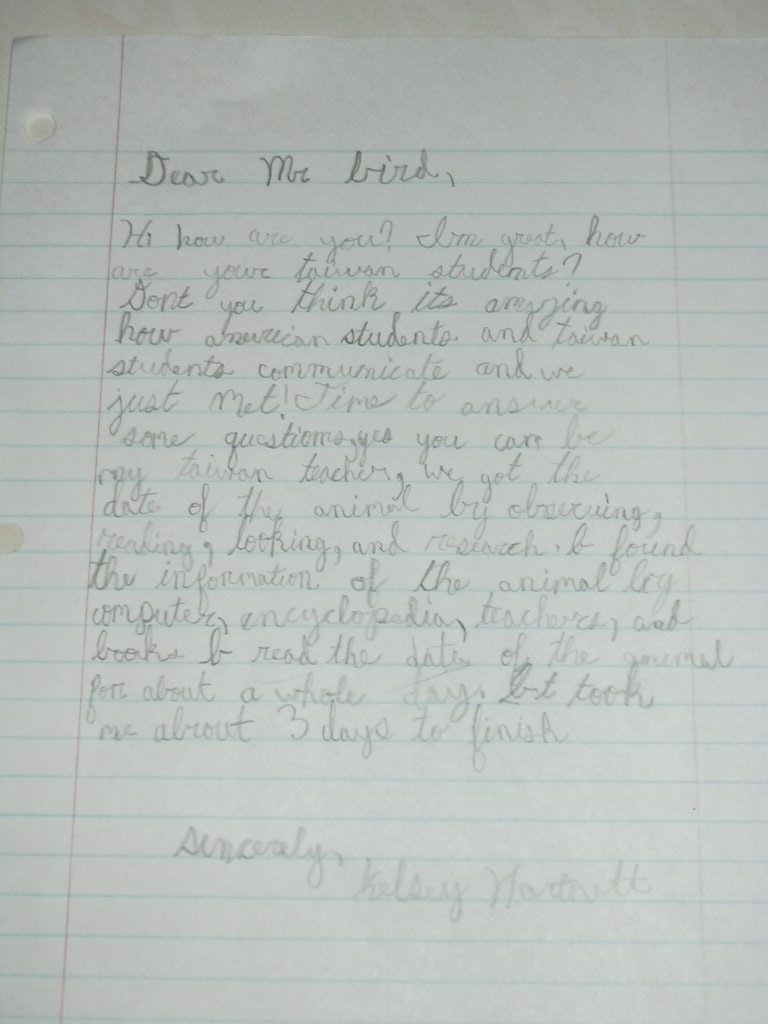 Dear Mr bird,
Hi how are you? I'm great, how
are your taiwan students?
Dont you think its amazing
how american students and taiwan
students communicate and we
just met! Time to answer
some questions, yes you can be
my taiwan teacher, we got the
data of the animal by observing,
reading, looking, and research. I found
the information of the animal by
computer, encyclopedia, teachers, and
books I read the data of the animal
for about a whole day. It took
me about 3 days to finish
Sincerely,
Kelsey